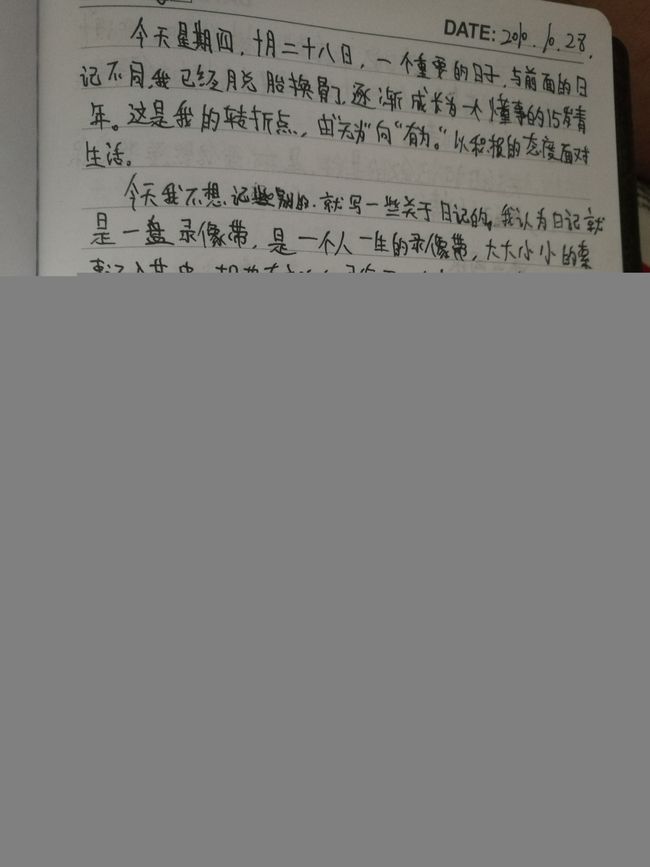 DATE: 2010.10.28.
今天星期四，十月二十八日，一个重要的日子，与前面的日
记不同，我已经脱胎换骨了，逐渐成长为一个懂事的15岁青
年。这是我的转折点，由"无为"向"有为。"以积极的态度面对
生活。
今天我不想记些别的，就写一些关于日记的，我认为日记就
是一盘录像带，是一个人一生的录像带，大大小小的